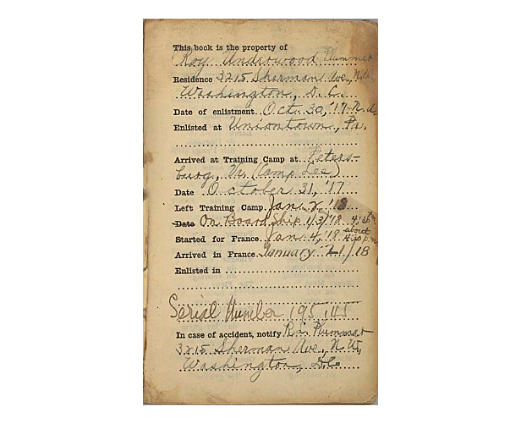 This book is the property of
Roy Underwood Plummer
Residence 3215 Sherman Ave., N.W.
Washington, D.C.
Date of enlistment Oct. 30, '17
Enlisted at Uniontown, Pa.
Arrived at Training Camp at Peters-
burg, Va. (Camp Lee)
Date October 31, '17
Left Training Camp Jan. 2, '18
Date On Board Ship 1/3/'18
Started for France Jan. 4, '18 about
Arrived in France January /18
Enlisted in
Serial Number
In case of accident, notify Plummer
3215 Sherman Ave., N.W.,
Washington, D.C.